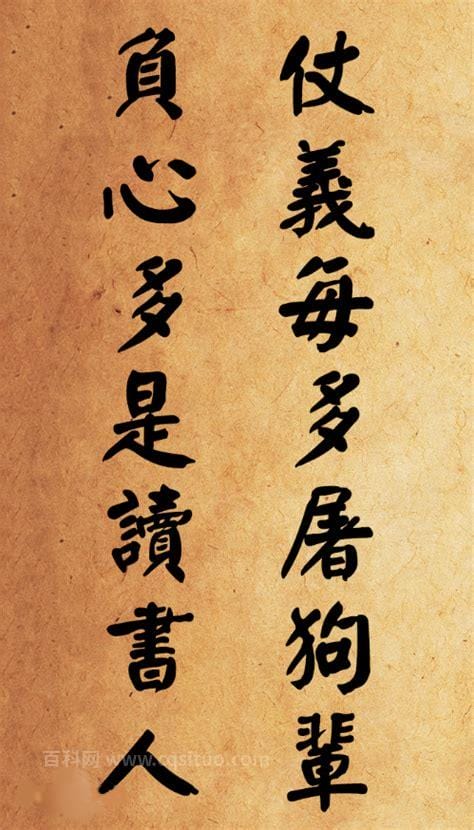 仗義每多屠狗輩
負心多是讀書人
百科网 www.cqsituo.com